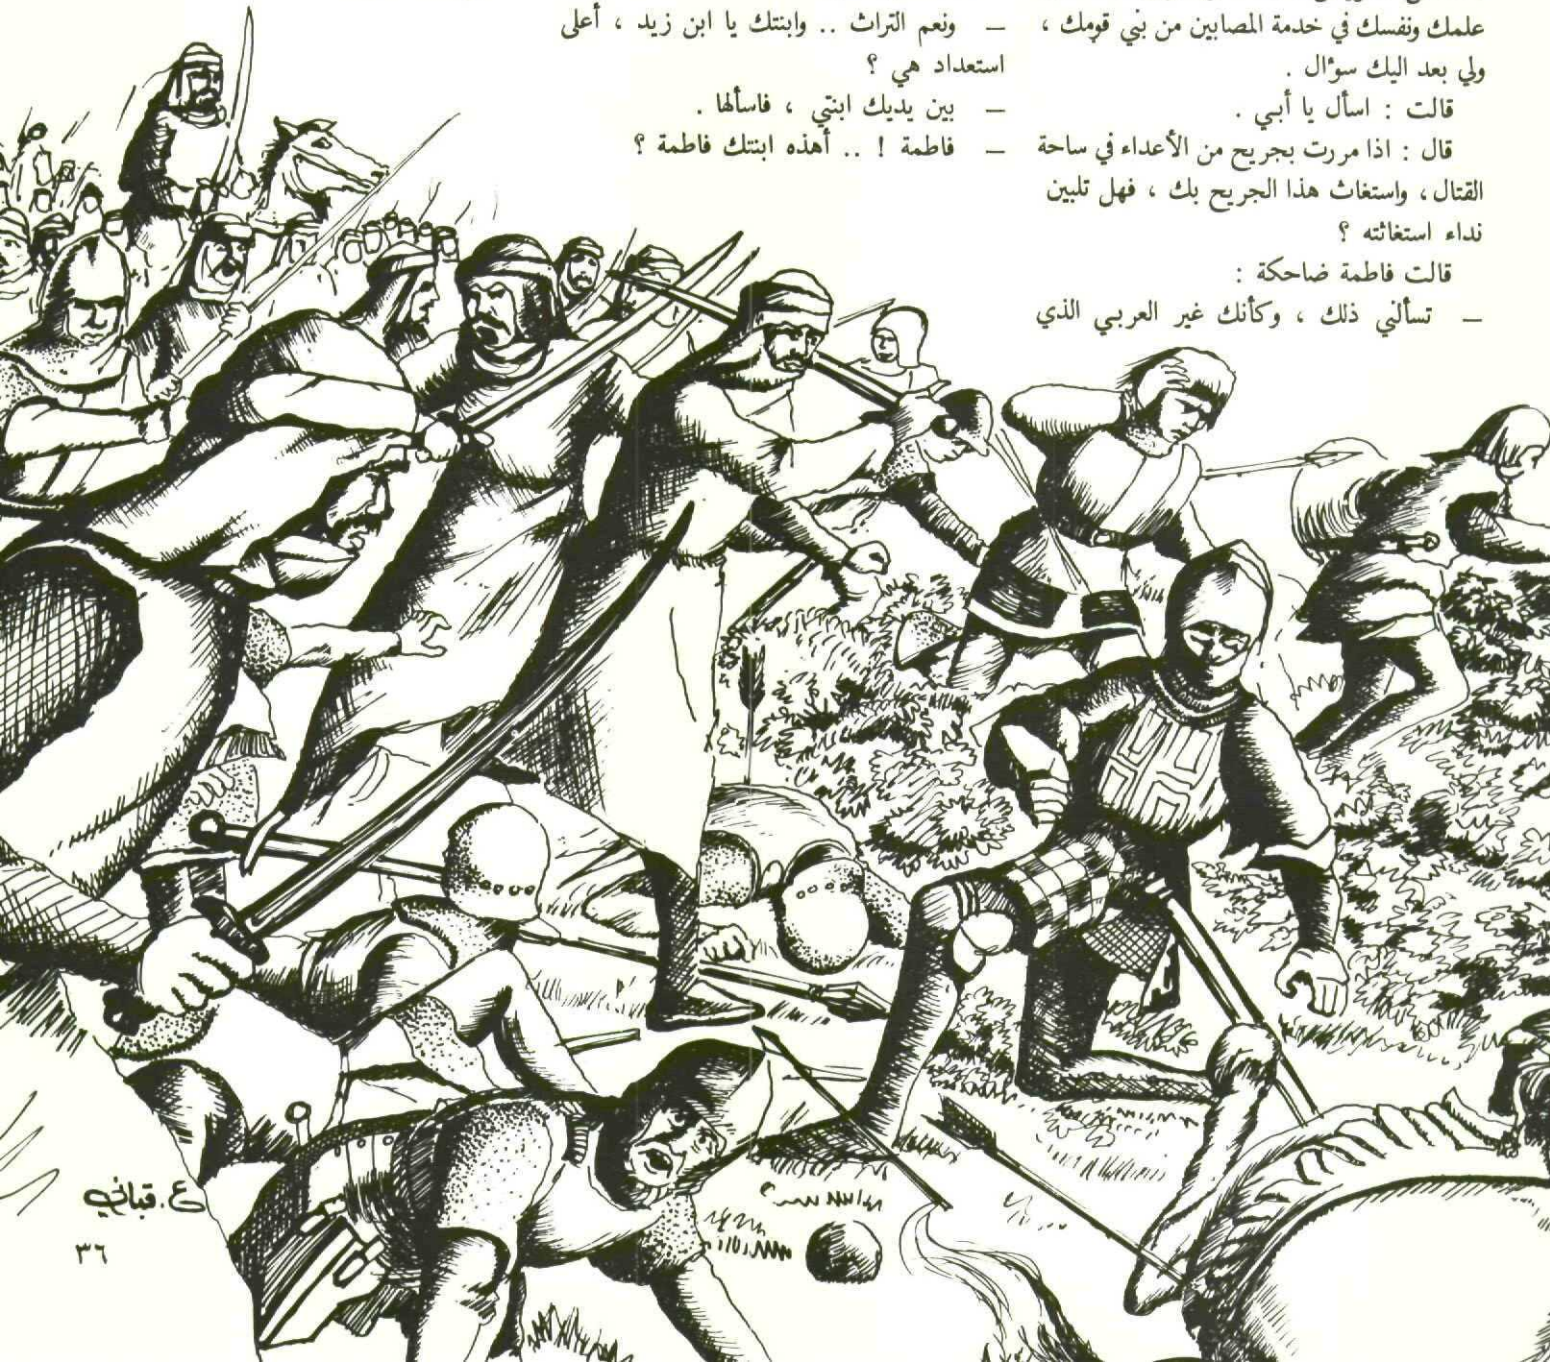 علمك ونفسك في خدمة المصابين من بني قومك ،
ولي بعد اليك سؤال .
قالت : اسأل يا أبي .
قال : اذا مررت بجريح من الأعداء في ساحة
القتال، واستغاث هذا الجريح بك ، فهل تلبين
نداء استغاثته ؟
قالت فاطمة ضاحكة :
— تسألني ذلك ، وكأنك غير العربي الذي
— ونعم التراث .. وابنتك يا ابن زيد ، أعلى
استعداد هي ؟
— بين يديك ابنتي ، فاسألها .
— فاطمة ! .. أهذه ابنتك فاطمة ؟
ع. قباني
٣٦